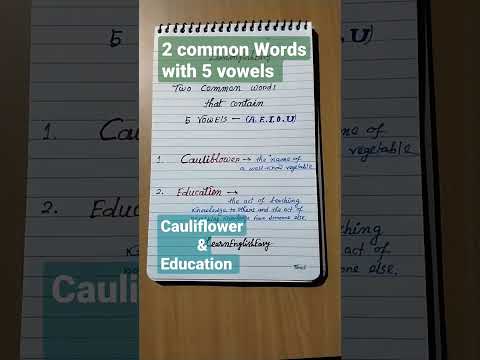 2 common Words
with 5 vowels
Two Common words
that contain
5 VOWELS - (A, E, I, O, U)
1. Cauliflower → the name of
a well-know vegetable
2. Education →
the act of teaching
knowledge to others and the act of
knowledge from someone else.
Cauliflower
&
Education
LearnEnglishEasy
5
U)
1. Cau
me of
vegetable
2. Edu
ching
act of
one else.
Caulif